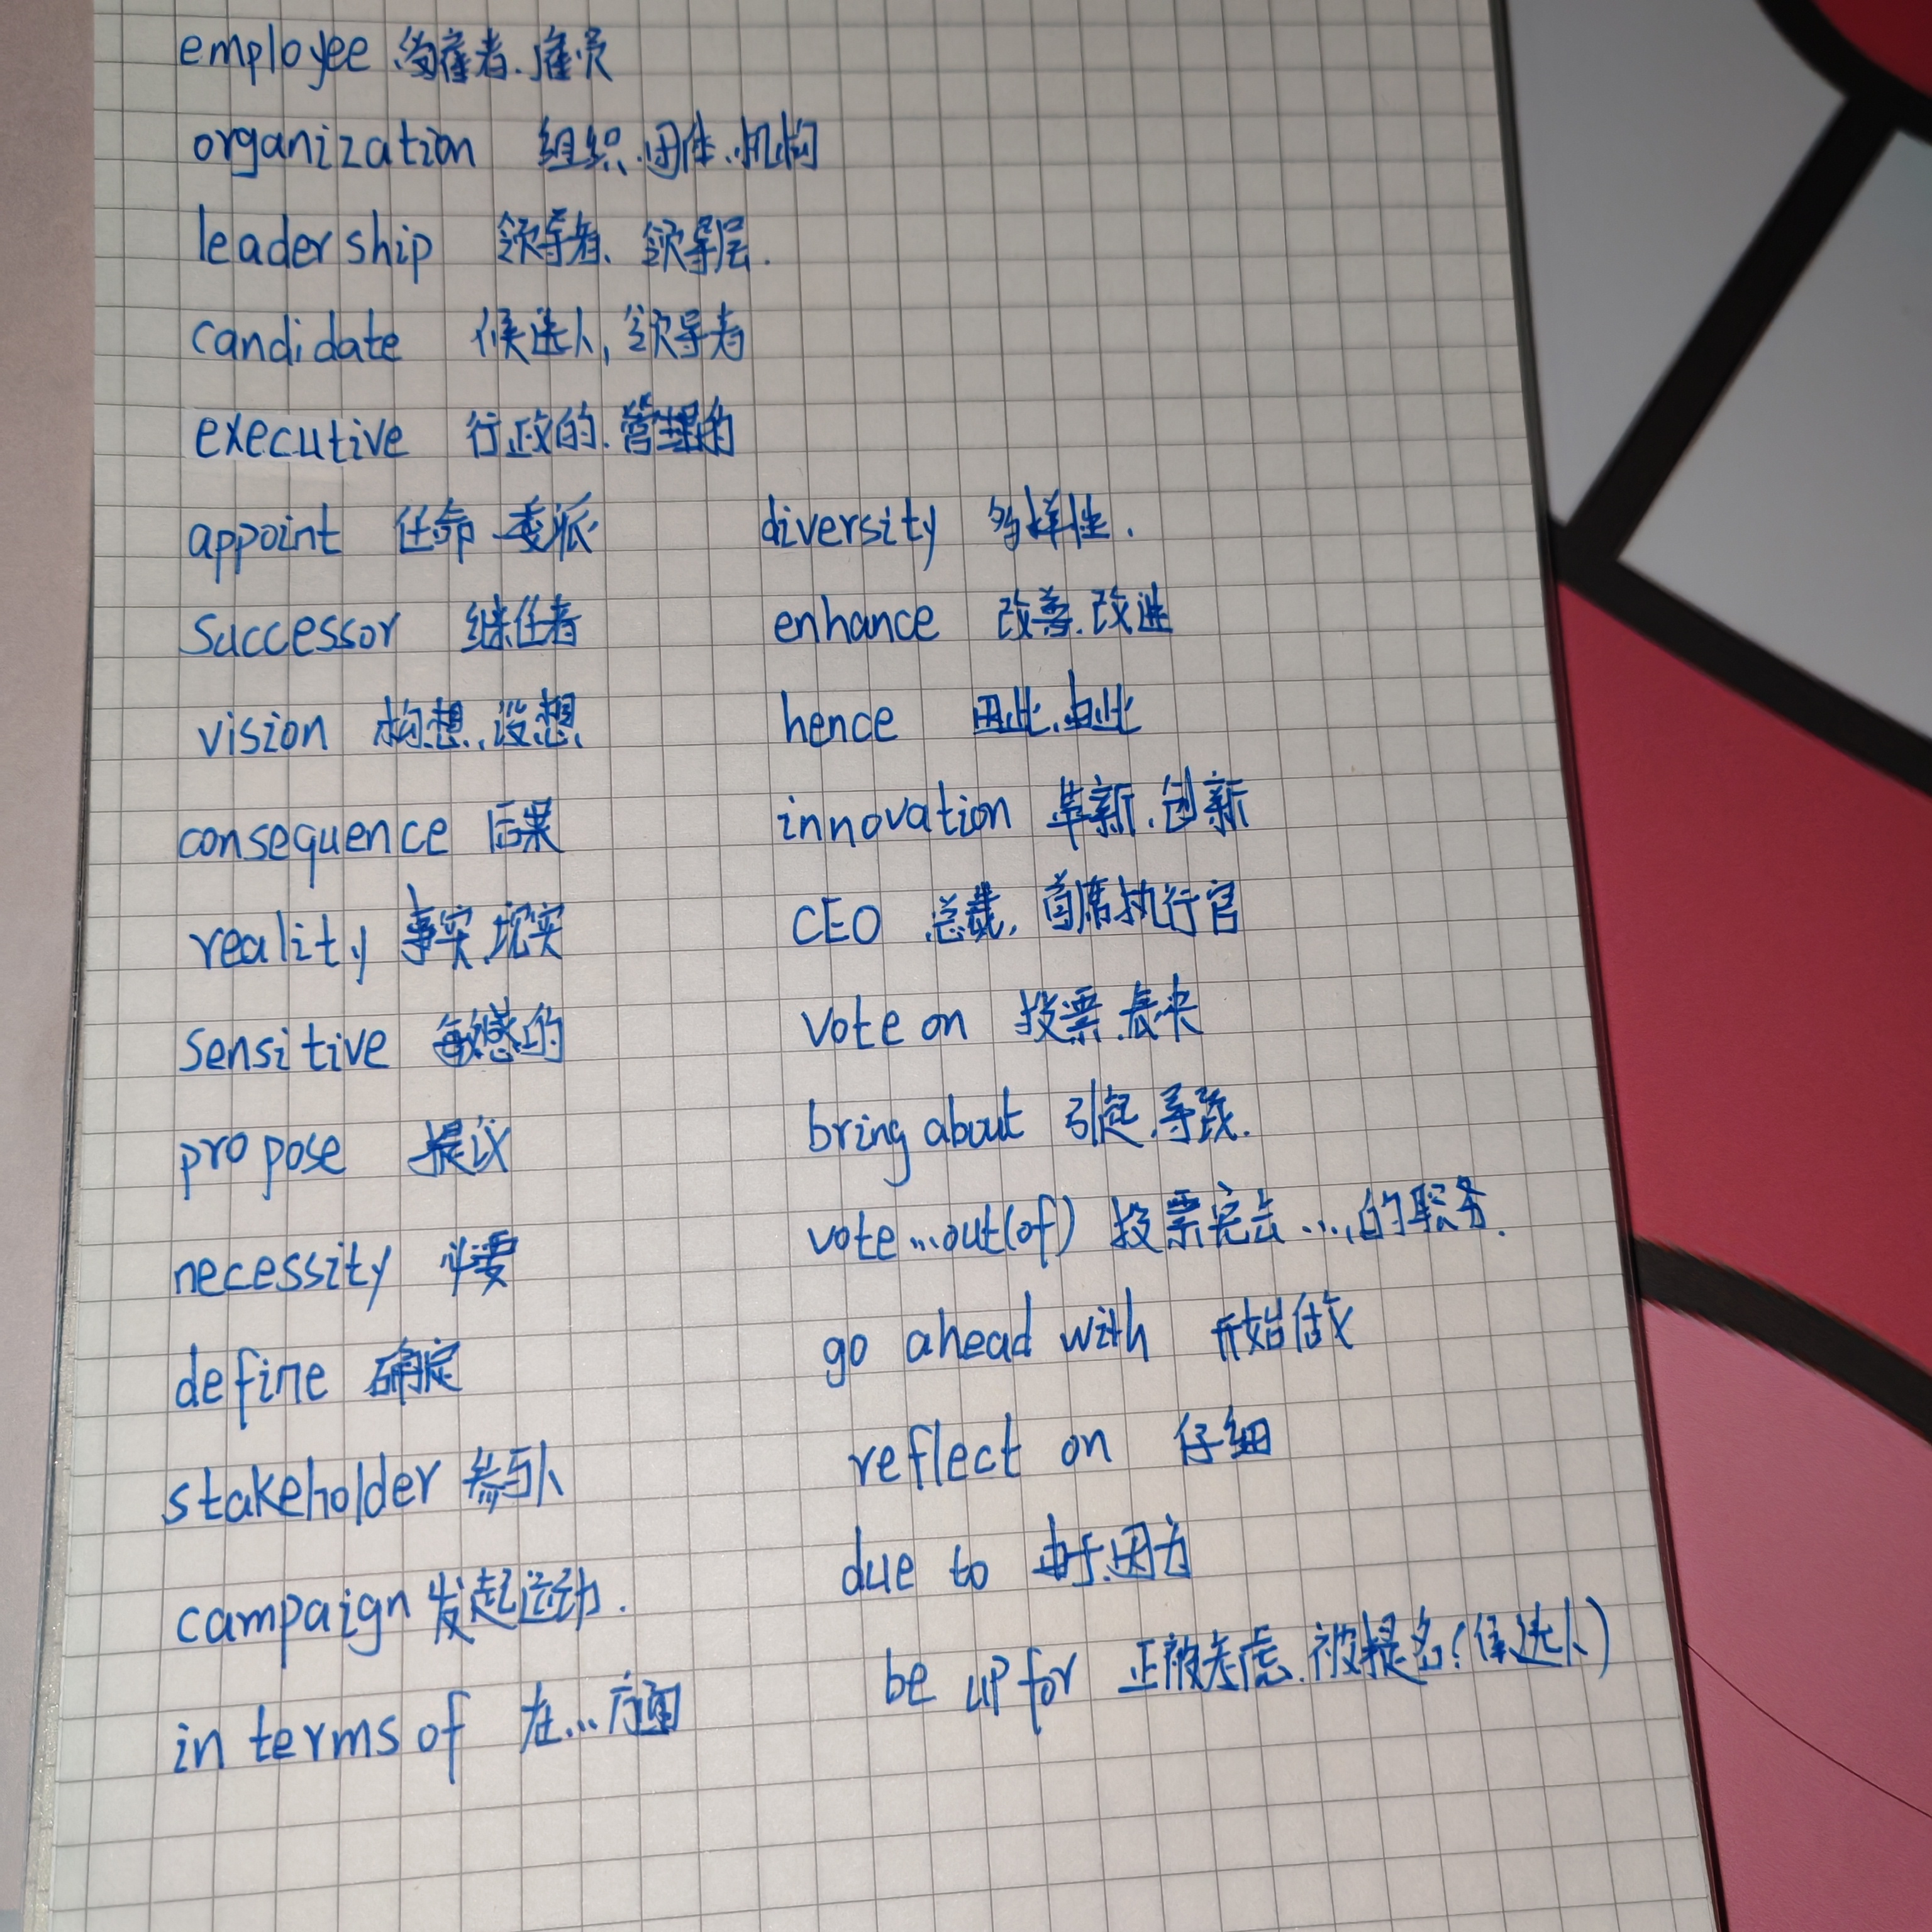 employee 受雇者、雇员
organization 组织、团体、机构
leadership 领导者、领导层.
candidate 候选人, 领导者
executive 行政的、管理的
appoint 任命 委派
successor 继任者
vision 构想、设想
consequence 后果
reality 事实、现实
sensitive 敏感的
propose 提议
necessity 必要
define 确定
stakeholder 参与人
campaign 发起运动.
in terms of 在...方面
diversity 多样性.
enhance 改善、改进
hence 因此、由此
innovation 革新、创新
CEO 总裁, 首席执行官
vote on 投票 表决
bring about 引起、导致.
vote...out(of) 投票免去....的职务.
go ahead with 开始做
reflect on 仔细
due to 由于、因为
be up for 正被考虑、被提名(候选人)